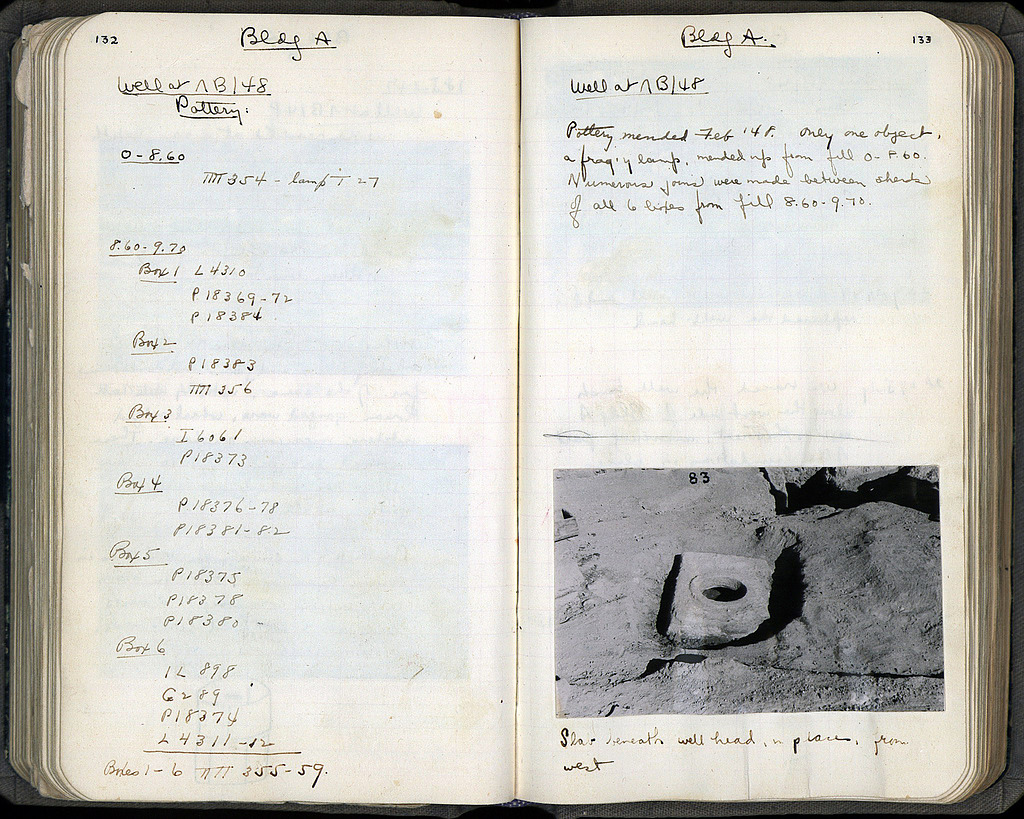 132
Bldg A
Well at ΛB/48
Pottery:
0-8.60
ΠΠ 354 - lamp T 27
8.60-9.70
Box 1 L 4310
P 18369-72
P 18384
Box 2
P 18383
ΠΠ 356
Box 3
I 6061
P 18373
Box 4
P 18376-78
P 18381-82
Box 5
P 18375
P 18378
P 18380
Box 6
IL 898
G 289
P 18374
L 4311-12
Boxes 1-6 ΠΠ 355-59.
Bldg A.
133
Well at ΛB/48
Pottery mended Feb '48. Only one object,
a frag'y lamp, mended up from fill 0-8.60.
Numerous joins were made between sherds
of all 6 boxes from fill 8.60-9.70.
83
Slab beneath well head, in place, from
west